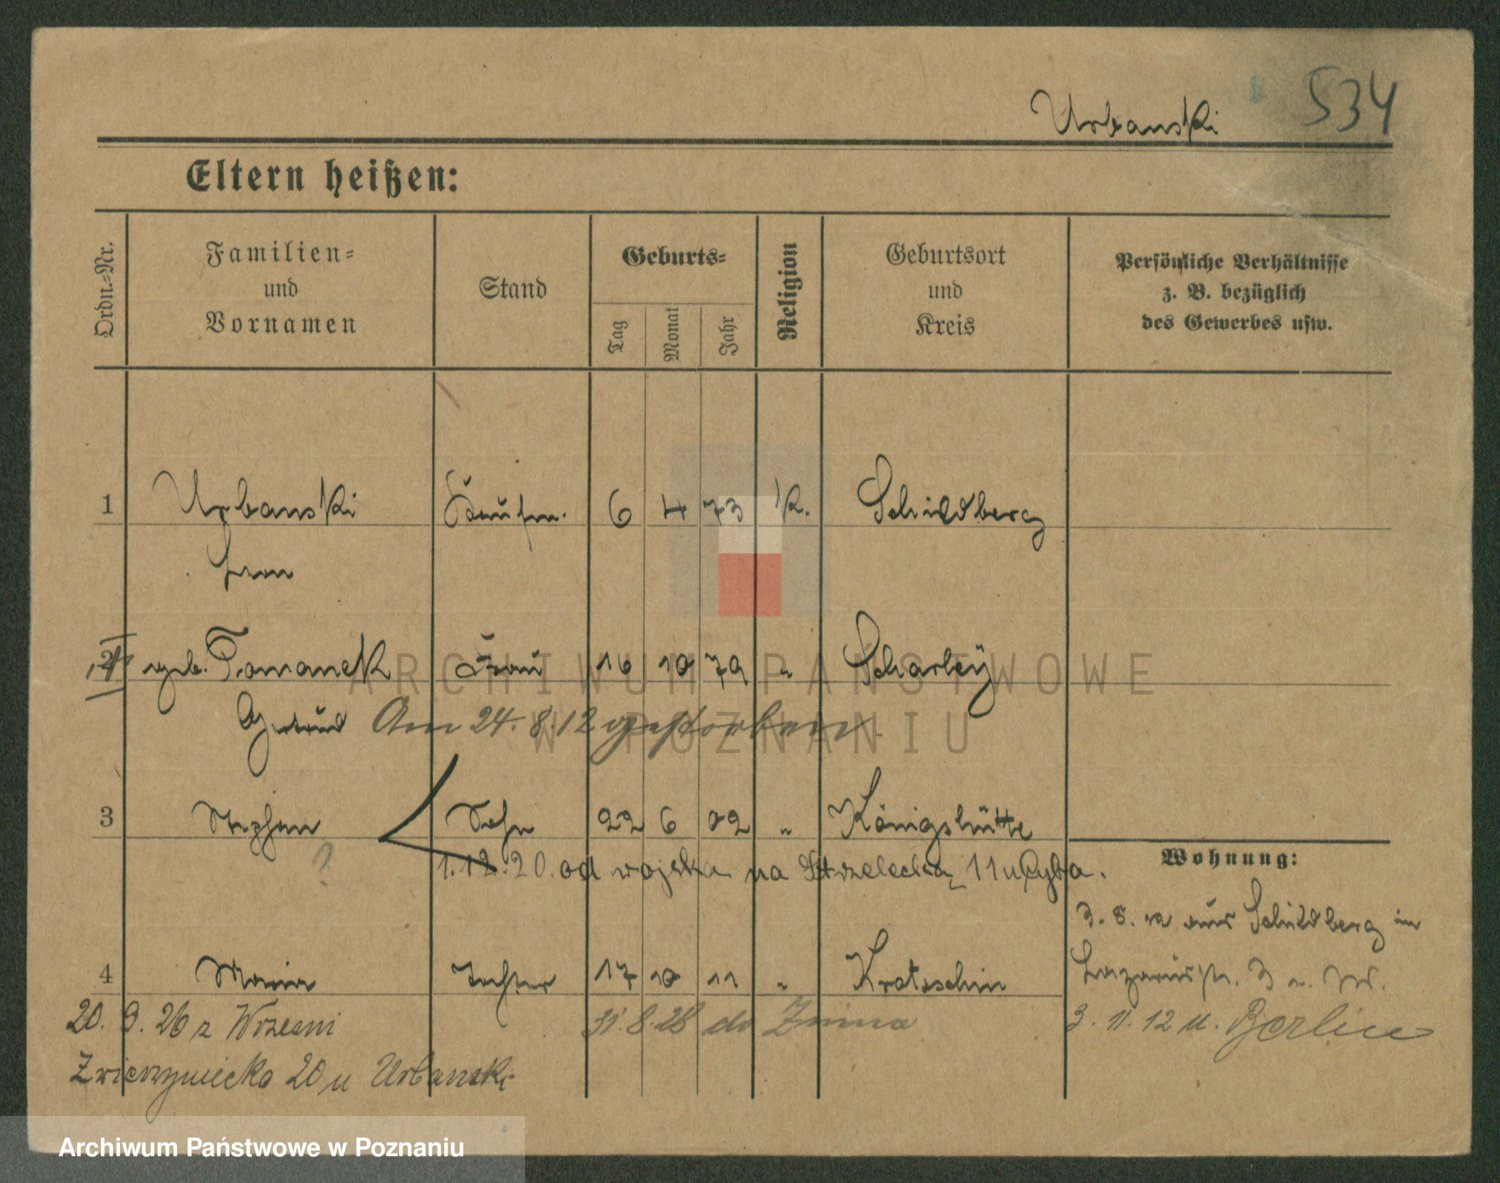 Urbanski 534
Eltern heißen:
Ordn.-Nr.
Familien-
und
Vornamen
Stand
Geburts-
Tag
Monat
Jahr
Religion
Geburtsort
und
Kreis
Persönliche Verhältnisse
z. B. bezüglich
des Gewerbes usw.
1 Urbanski Kaufm. 6 4 73 K. Schildberg
2 geb. Tomanek Frau 16 10 79 " Scharley
Am 24.8.12 gestorben
3 Stephan Sohn 22 6 02 " Königshütte
1.12.20. od wojska na Strzelecką 11 u Cyba.
Wohnung:
3. 8. 12 aus Schildberg in
4 Maria Tochter 17 10 11 " Krotoschin
Lazarusstr. 3
20. 9. 26 z Wrześni
31 8.28 do Żnina
3. 11. 12 u. Berlin
Zwierzyniecka 20 u Urbanski
ARCHIWUM PAŃSTWOWE
W POZNANIU
Archiwum Państwowe w Poznaniu